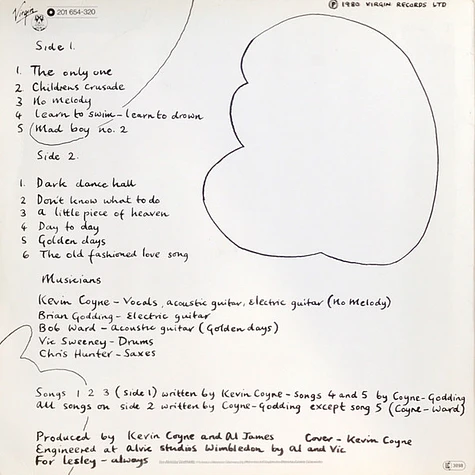 Virgin
201 654-320
℗ 1980 VIRGIN RECORDS LTD
Side 1.
1. The only one
2 Childrens crusade
3 No melody
4 Learn to swim - learn to drown
5 Mad boy no. 2
Side 2.
1. Dark dance hall
2 Don't know what to do
3 a little piece of heaven
4 Day to day
5 Golden days
6 The old fashioned love song
Musicians
Kevin Coyne - Vocals, acoustic guitar, Electric guitar (No Melody)
Brian Godding - Electric guitar
Bob Ward - acoustic guitar (Golden days)
Vic Sweeney - Drums
Chris Hunter - Saxes
Songs 1 2 3 (side 1) written by Kevin Coyne - Songs 4 and 5 by Coyne - Godding
all songs on side 2 written by Coyne - Godding except song 5 (Coyne - Ward)
Produced by Kevin Coyne and Al James Cover - Kevin Coyne
Engineered at Alvic studios Wimbledon by Al and Vic
For Lesley - always